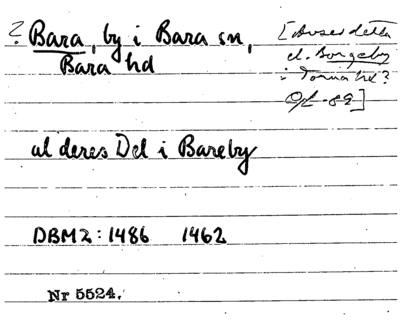 ? Bara, by i Bara sn,
Bara hd
[Avser detta
el. Borgeby
i Torna hd?
Of -89]
al deres Del i Bareby
DBM2: 1486 1462
Nr 5524.